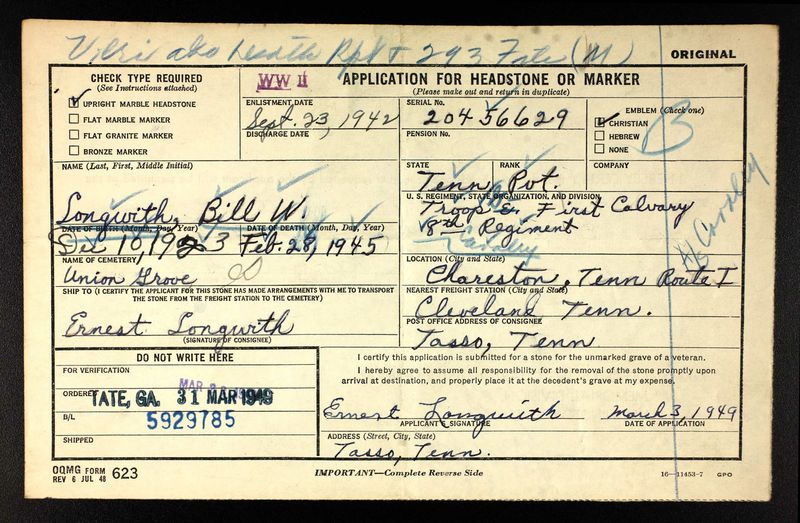 293 (M) ORIGINAL
CHECK TYPE REQUIRED
(See Instructions attached)
UPRIGHT MARBLE HEADSTONE
FLAT MARBLE MARKER
FLAT GRANITE MARKER
BRONZE MARKER
WW II APPLICATION FOR HEADSTONE OR MARKER
(Please make out and return in duplicate)
ENLISTMENT DATE
Sept. 23, 1942
DISCHARGE DATE
SERIAL No.
204 56629
PENSION No.
EMBLEM (Check one)
CHRISTIAN
HEBREW
NONE
B
NAME (Last, First, Middle Initial)
Longwith, Bill W.
STATE RANK COMPANY
Tenn Pvt.
U. S. REGIMENT, STATE ORGANIZATION, AND DIVISION
Troop E. First Calvary
8th Regiment
Cavalry
DATE OF BIRTH (Month, Day, Year) DATE OF DEATH (Month, Day, Year)
Dec 10, 1923 Feb. 28, 1945
NAME OF CEMETERY
Union Grove
LOCATION (City and State)
Chareston, Tenn Route I
SHIP TO (I CERTIFY THE APPLICANT FOR THIS STONE HAS MADE ARRANGEMENTS WITH ME TO TRANSPORT
THE STONE FROM THE FREIGHT STATION TO THE CEMETERY)
Ernest Longwith
(SIGNATURE OF CONSIGNEE)
NEAREST FREIGHT STATION (City and State)
Cleveland Tenn.
POST OFFICE ADDRESS OF CONSIGNEE
Tasso, Tenn
DO NOT WRITE HERE
FOR VERIFICATION
ORDERED
TATE, GA. 31 MAR 1949
B/L
5929785
SHIPPED
I certify this application is submitted for a stone for the unmarked grave of a veteran.
I hereby agree to assume all responsibility for the removal of the stone promptly upon
arrival at destination, and properly place it at the decedent's grave at my expense.
Ernest Longwith March 3, 1949
APPLICANT'S SIGNATURE DATE OF APPLICATION
ADDRESS (Street, City, State)
Tasso, Tenn.
OQMG FORM 623
REV 6 JUL 48
IMPORTANT—Complete Reverse Side
16—11453-7 GPO